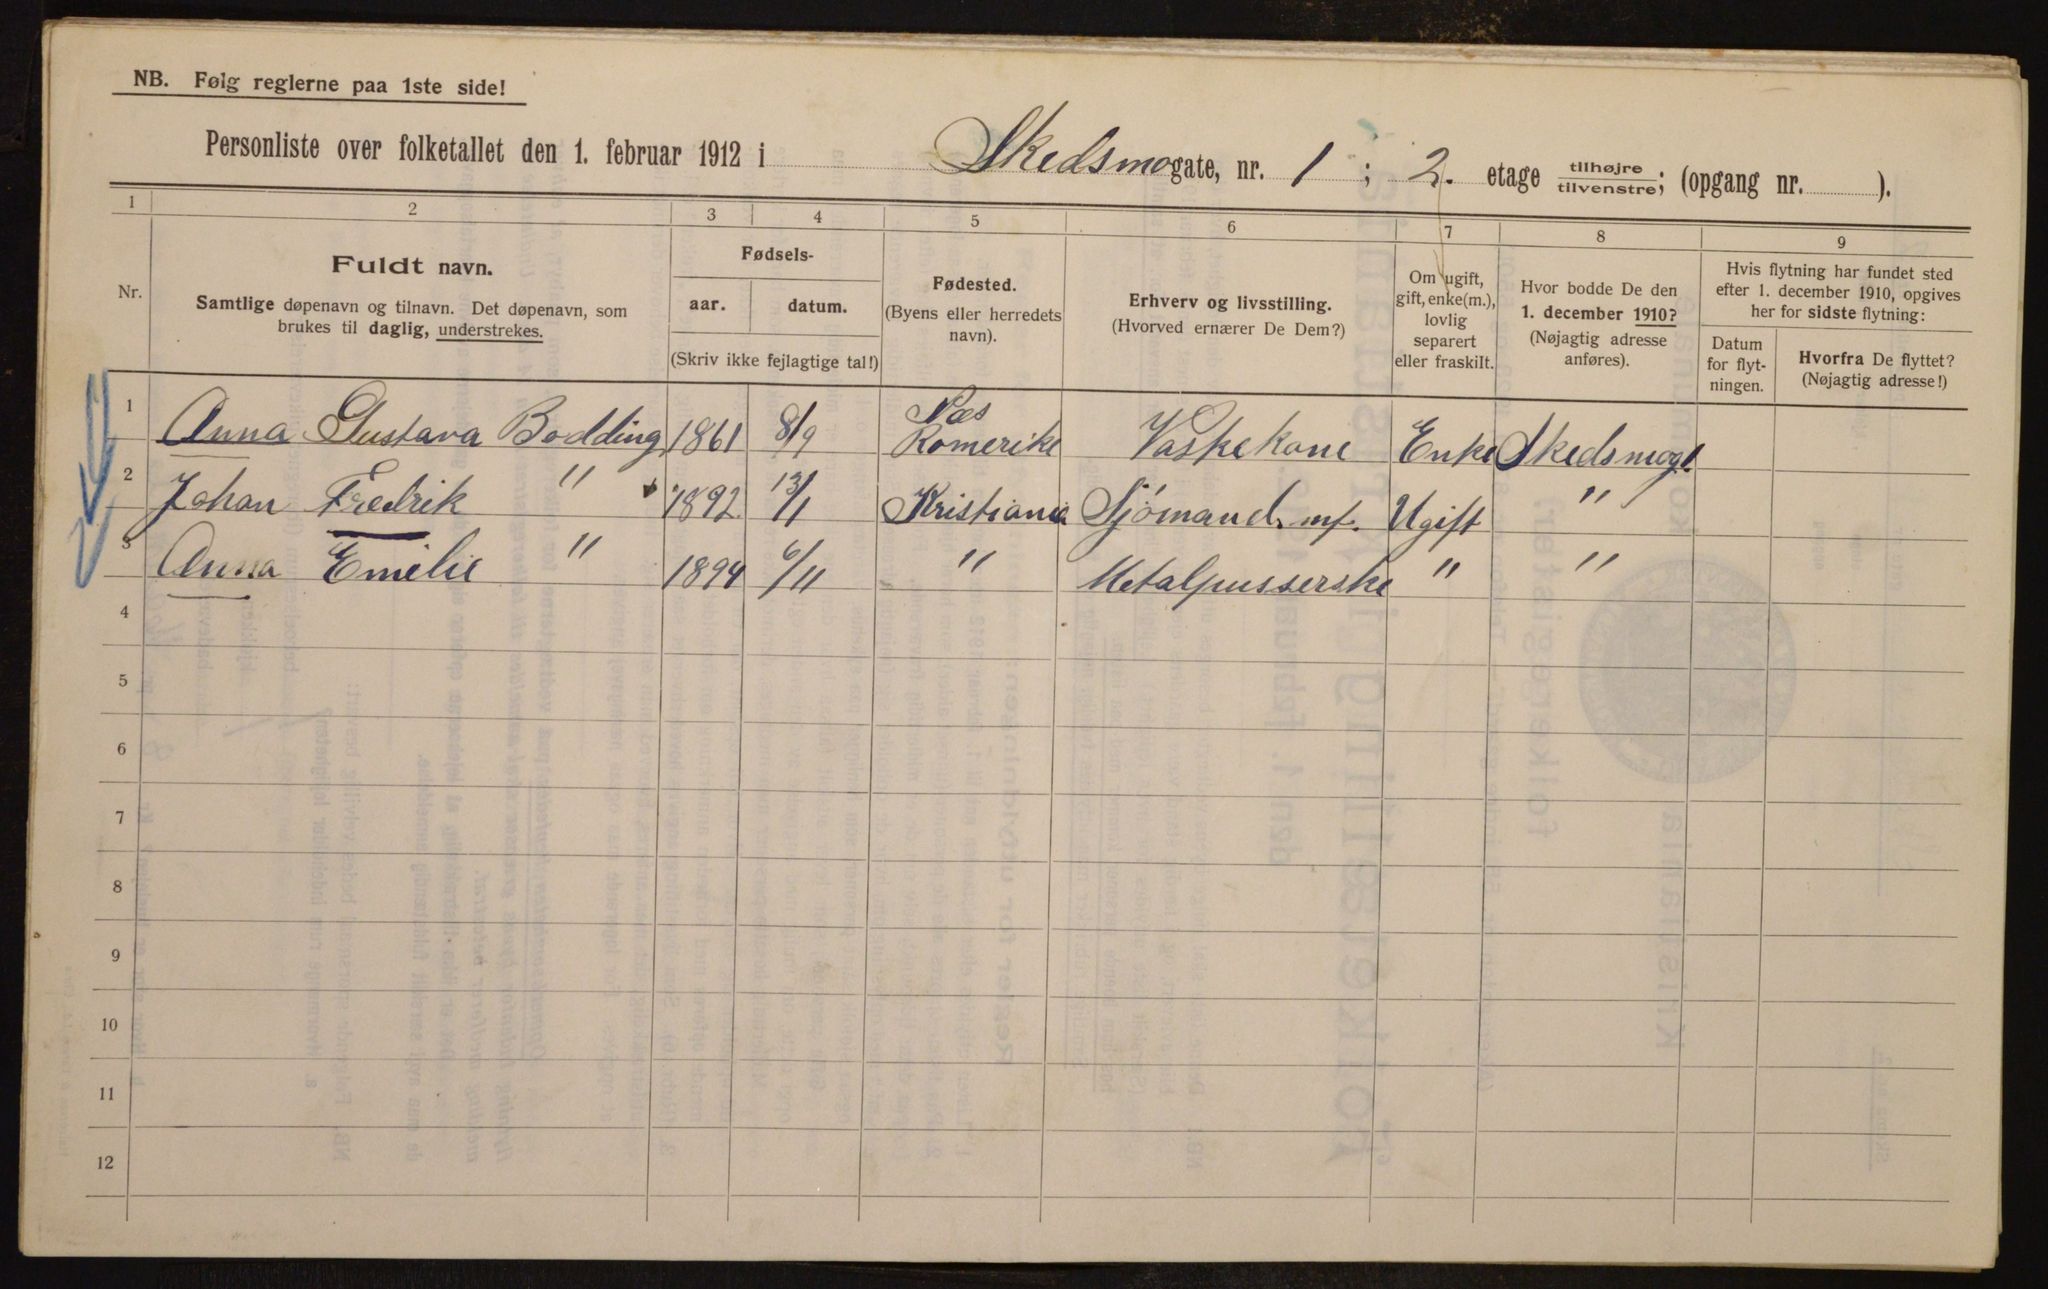 NB. Følg reglerne paa 1ste side!
Personliste over folketallet den 1. februar 1912 i Skedsmogate, nr. 1 ; 2. etage tilhøjre/tilvenstre; (opgang nr. ).
1 2 3 4 5 6 7 8 9
Nr.
Fuldt navn.
Samtlige døpenavn og tilnavn. Det døpenavn, som
brukes til daglig, understrekes.
Fødsels-
aar. datum.
(Skriv ikke fejlagtige tal!)
Fødested.
(Byens eller herredets
navn).
Erhverv og livsstilling.
(Hvorved ernærer De Dem?)
Om ugift,
gift, enke(m.),
lovlig
separert
eller fraskilt.
Hvor bodde De den
1. december 1910?
(Nøjagtig adresse
anføres).
Hvis flytning har fundet sted
efter 1. december 1910, opgives
her for sidste flytning:
Datum
for flyt-
ningen.
Hvorfra De flyttet?
(Nøjagtig adresse!)
1 Anna Gustava Bodding 1861 8/9 Næs Romerike Vaskekone Enke Skedsmogt. 1
2 Johan Fredrik " 1892 13/1 Kristiania Sjömand. mf. Ugift "
3 Anna Emilie " 1894 6/11 " Metalpusserske " "
4
5
6
7
8
9
10
11
12